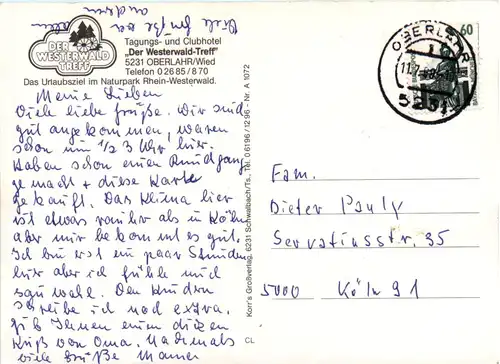 Viele Grüße
an den
DER
WESTERWALD
TREFF
Tagungs- und Clubhotel
„Der Westerwald-Treff"
5231 OBERLAHR/Wied
Telefon 0 26 85 / 8 70
Das Urlaubsziel im Naturpark Rhein-Westerwald.
Meine Lieben
Viele liebe Grüße. Wir sind
gut angekommen, waren
schon um 1/2 3 Uhr hier.
Haben schon einen Rundgang
gemacht + diese Karte
gekauft. Das Klima hier
ist etwas rauher als in Köln
aber mir bekommt es gut.
Ich bin erst ein paar Stunden
hier aber ich fühle mich
sau wohl. Den Kindern
schreibe ich noch extra.
gib Ihnen einen dicken
Kuß von Oma. Nochmals
viele Grüße Mama
Korr's Großverlag, 6231 Schwalbach/Ts., Tel. 0 61 96 / 12 96 - Nr. A 1072
CL
60
OBERLAHR
5231
Fam.
Dieter Pauly
Servatiusstr. 35
5000 Köln 91